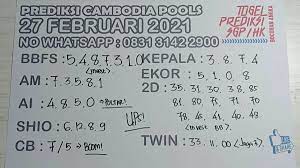 PREDIKSI CAMBODIA POOLS
27 FEBRUARI 2021
NO WHATSAPP : 0831 3142 2900
TOGEL
PREDIKSI
SGP/HK
BBFS : 5.4.8.7.3.1.0
(invest)
AM : 7.3.5.8.1
AI : 4.8.5.0
SHIO : 6.12.8.9
CB : 7/5 → BOOM!
UPS!
KEPALA : 3.8.7.4
EKOR : 5.1.0.8
2D : 35. 31. 30. 38. 85
81. 80. 71. 70
48
(invest BB)
TWIN : 33. 11. 00